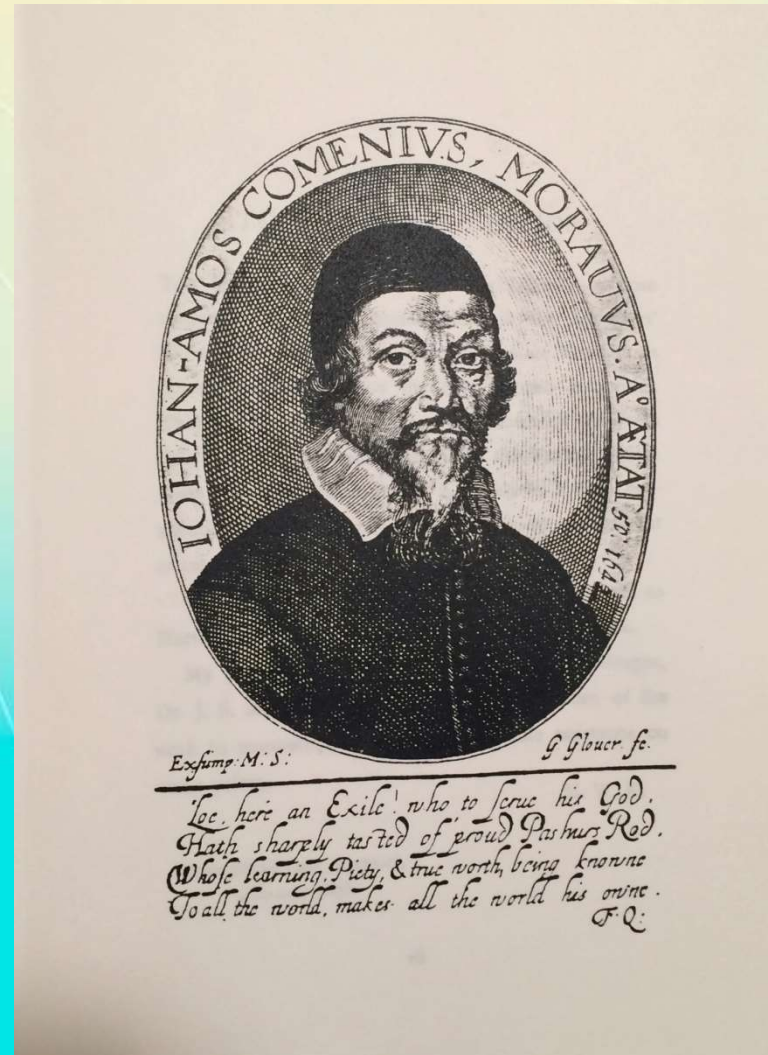 IOHAN-AMOS COMENIVS, MORAUVS. Aº ÆTAT 50º 164
Exsump: M: S:
G Glouer. fe.
Loe, here an Exile! who to serue his God,
Hath sharply tasted of proud Pashurs Rod.
Whose learning, Piety, & true worth, being knowne
To all the world, makes all the world his owne.
F. Q: